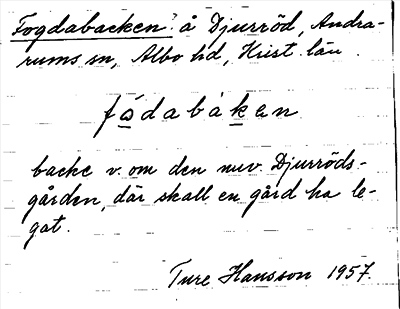 Fogdabacken? å Djurröd, Andra-
rums sn, Albo hd, Krist. län.
fódabàken
backe v. om den nuv. Djurröds-
gården, där skall en gård ha le-
gat.
Ture Hansson 1957.